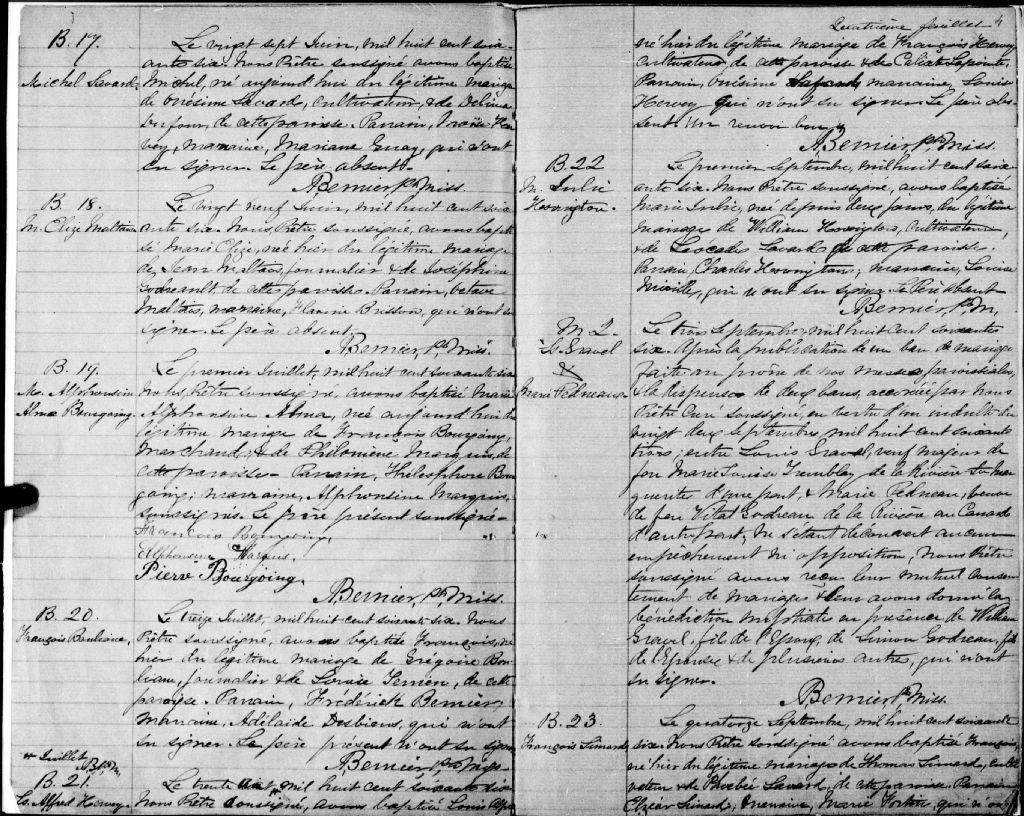 B. 17.
Michel Savard.
Le vingt sept Juin, mil huit cent soix-
ante six. Nous Prêtre soussigné avons baptisé
Michel, né aujourd'hui du légitime mariage
de Onésime Savard, cultivateur, & de Delima
Dufour, de cette paroisse. Parrain, Her-
vey, marraine, Mariane Guay, qui n'ont
su signer. Le père absent.
ABernier, ptr. Miss.
B. 18.
M. Elize Maltais
Le vingt neuf Juin, mil huit cent soix-
ante six. Nous, Prêtre soussigné, avons bapti-
sé Marie Elize, née hier du légitime mariage
de Jean Maltais, journalier & de Joséphine
Godreault de cette paroisse. Parrain, Octave
Maltais, marraine, Flavie Brisson, qui n'ont su
signer. Le père absent.
ABernier, ptr. Miss.
B. 19.
Me. Alphonsine
Alma Bourgoing.
Le premier Juillet, mil huit cent soixante six
Nous, Prêtre soussigné, avons baptisé Marie
Alphonsine Alma, née aujourd'hui du
légitime mariage de François Bourgoing,
Marchand, & de Philomène Marquis, de
cette paroisse. Parrain, Thelesphore Bour-
going; marraine, Alphonsine Marquis,
soussignés. Le père présent soussigné.
François Bourgoing,
Alphonsine Marquis.
Pierre Bourgoing.
ABernier, ptr. Miss.
B. 20.
François Bouliane,
Le treize Juillet, mil huit cent soixante six. Nous
Prêtre soussigné, avons baptisé François, né
hier du légitime mariage de Grégoire Bou-
liane, journalier & de Louise, de cette
paroisse. Parrain, Frédérick Bernier,
Marraine, Adélaïde Desbiens, qui n'ont
su signer. Le père présent n'ont su signer
ABernier, ptr. Miss.
Juillet,
AB, ptr. M.
B. 21.
Ls. Alfred Hervey.
Le trente mil huit cent soixante six
Nous Prêtre soussigné, avons baptisé Louis Alfred
Quatrième feuillet 4
né hier du légitime mariage de François Hervey
cultivateur de cette paroisse & de Lapointe,
Parrain, Onésime, marraine, Louise
Hervey qui n'ont su signer. Le père ab-
sent. Un renvoi bon.
ABernier, ptr. Miss.
B 22
M. Julie
Hovington.
Le premier Septembre, mil huit cent soix-
ante six. Nous Prêtre soussigné, avons baptisé
Marie Julie, née depuis deux jours, du légitime
mariage de William Hovington, Cultivateur,
& de Savard de cette paroisse.
Parrain, Charles Hovington; marraine, Louise
Miville, qui n'ont su signer. Le Père absent
ABernier, ptr. M.
M 2.
Ls. Gravel
&
Marie Pedneaux
Le trois Septembre, mil huit cent soixante
six. Après la publication de un ban de mariage
faite au prône de nos messes paroissiales,
& la dispense de deux bans, accordée par nous
Prêtre Curé soussigné, en vertu d'un indult du
vingt deux Septembre mil huit cent soixante
trois; entre Louis Gravel, veuf majeur de
feu Marie Louise Tremblay de la Rivière Ste Mar-
guerite d'une part, & Marie Pedneau, veuve
de feu Vital Godreau de la Rivière au Canard
d'autre part; ne s'étant découvert aucun
empêchement ni opposition, Nous Prêtre
soussigné avons reçu leur mutuel consen-
tement de mariage & leur avons donné la
bénédiction nuptiale en présence de William
Gravel, fils de l'Epoux, de Simon Godreau, fils
de l'Epouse & de plusieurs autres, qui n'ont
su signer.
ABernier, ptr. Miss.
B. 23.
François Simard
Le quatorze Septembre, mil huit cent soixante
six. Nous Prêtre soussigné avons baptisé François,
né hier du légitime mariage de Thomas Simard, culti-
vateur & de Phœbée Savard, de cette paroisse. Parrain
Elzéar Simard; Marraine, Marie Fortin, qui n'ont